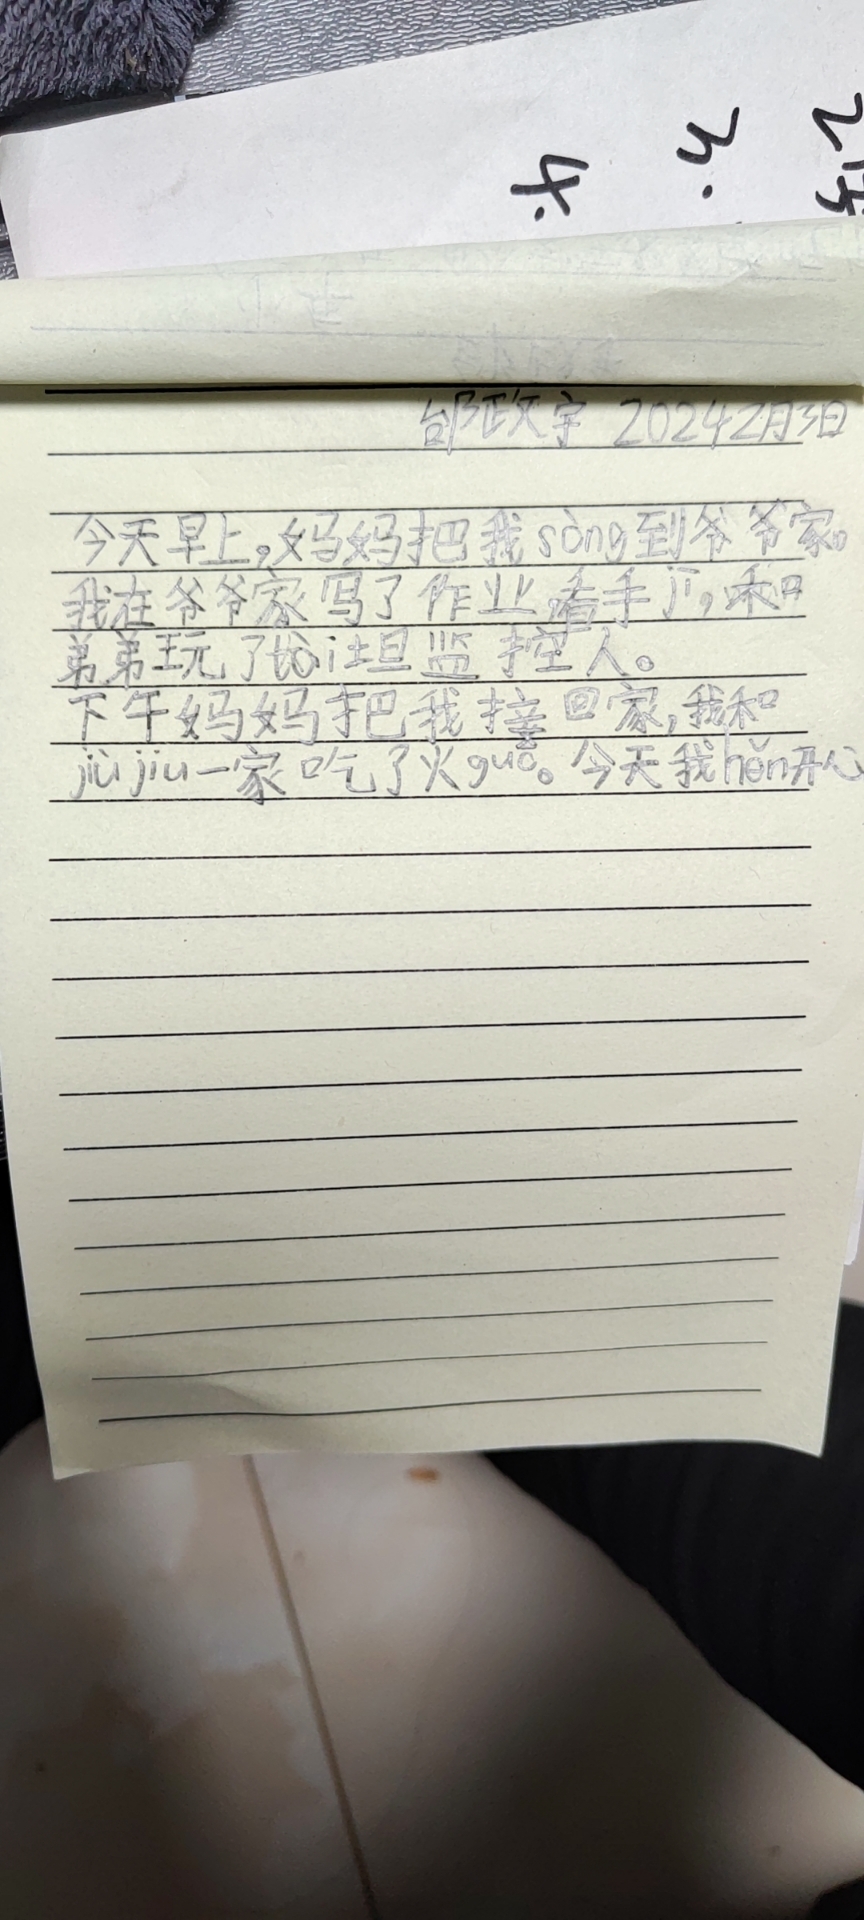 4.
3.
2
邰政文宇 2024 2月3日
今天早上。妈妈把我sòng到爷爷家。
我在爷爷家写了作业看手jī,和
弟弟玩了tài坦监控人。
下午妈妈把我接回家,我和
jiù jiu一家吃了火guō。今天我hěn开心